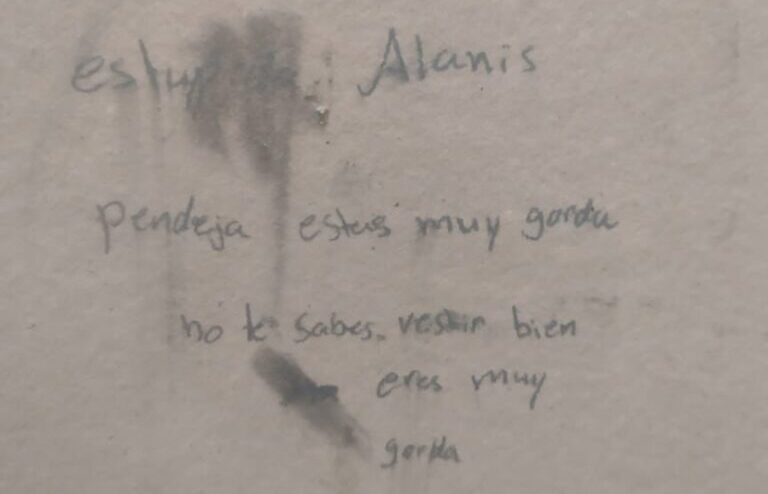 Alanis
pendeja estas muy gorda
no te sabes vestir bien
eres muy
gorda